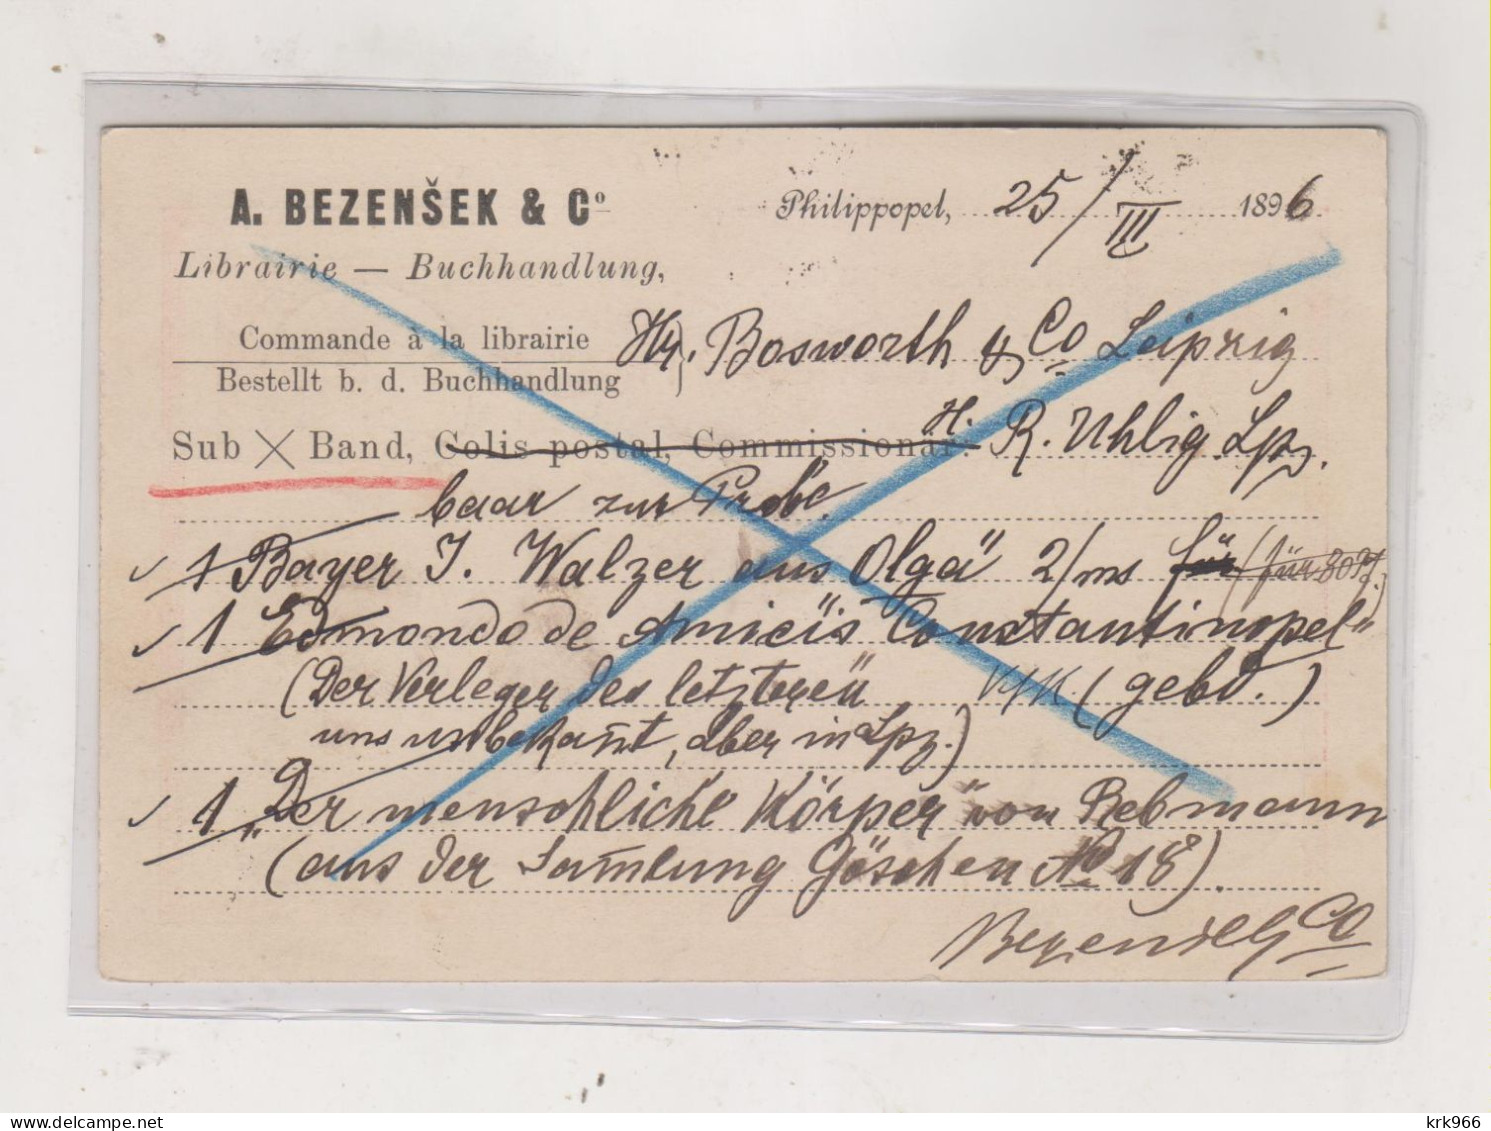 A. BEZENŠEK & Cº
Philippopel, 25/III 1896
Librairie — Buchhandlung,
Commande à la librairie
Bestellt b. d. Buchhandlung
Hr. Bosworth & Co Leipzig
Sub X Band, Colis postal, Commissionär: H. R. Uhlig Lpz.
baar zur Probe.
1 Bayer J. Walzer aus Olga" 2/ms für (für 80
1 Edmondo de Amicis Constantinopel"
(Der Verleger des letzteren (gebd.)
uns unbekannt, aber in Lpz.)
1 "Der menschliche Körper" von Rebmann
(aus der Samlung Göschen No 18).
Bezenšek & Co
krk966